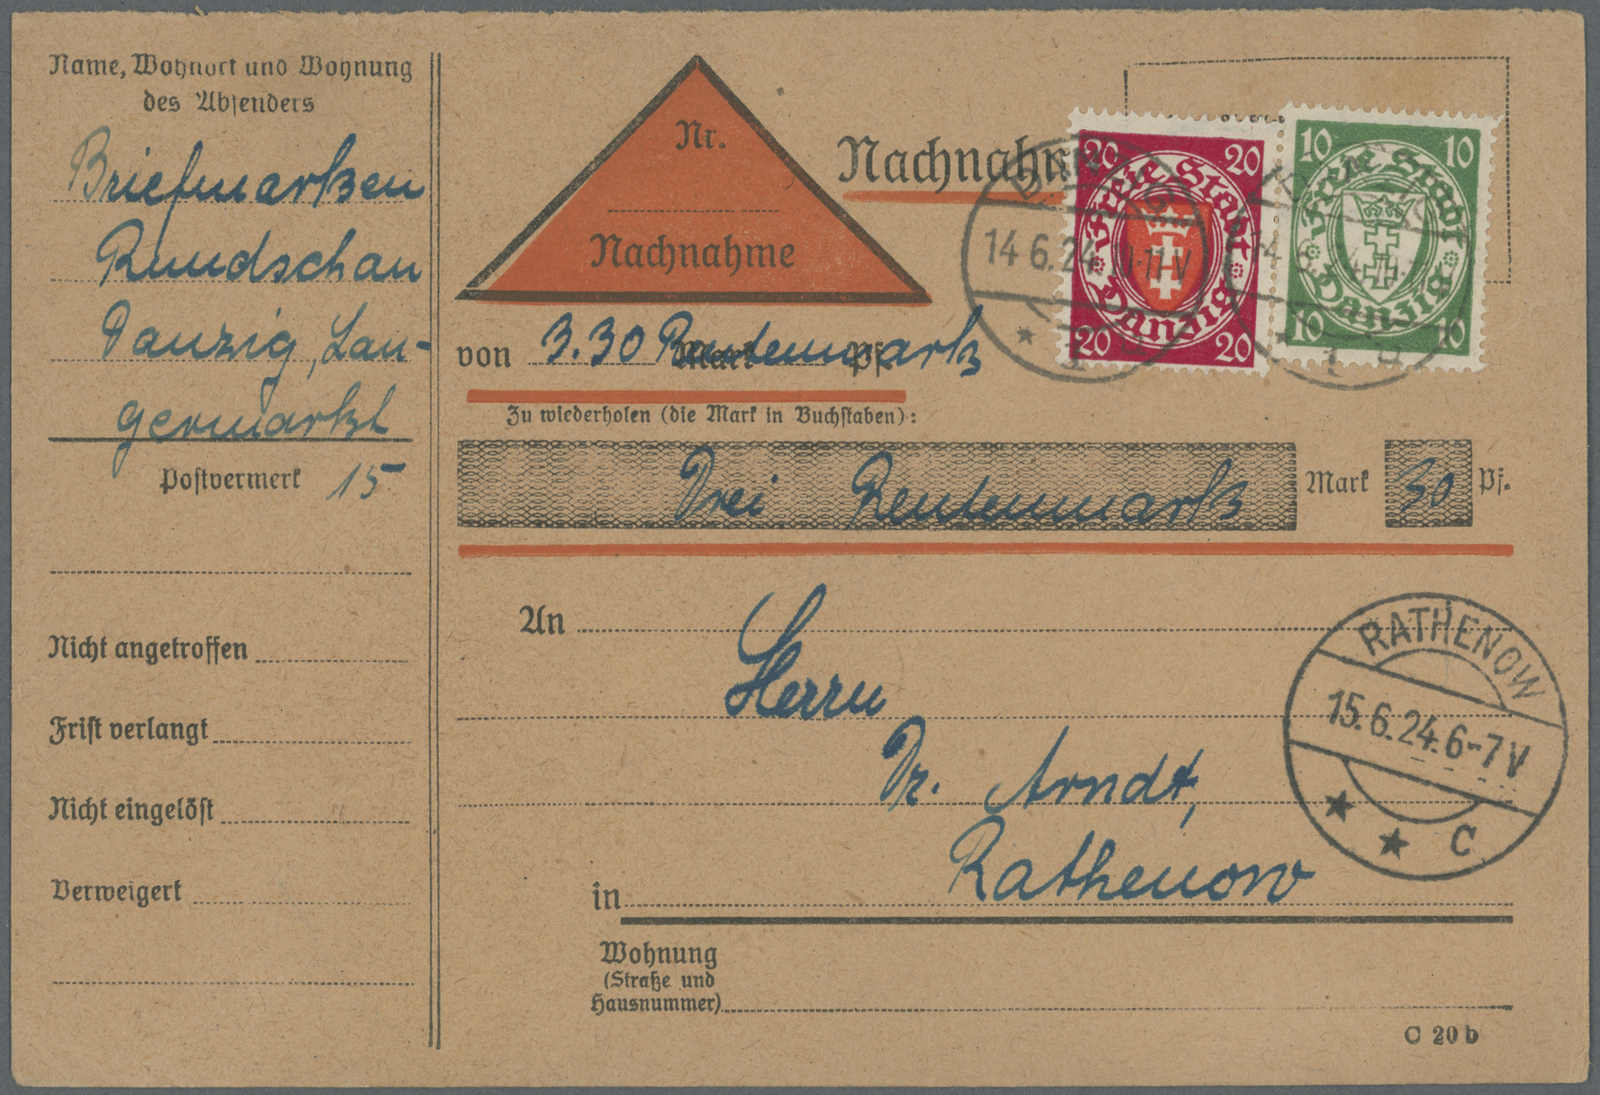 Name, Wohnort und Wohnung
des Absenders
Briefmarken
Rundschau
Danzig, Lan-
germarkt
15
Postvermerk
Nicht angetroffen
Frist verlangt
Nicht eingelöst
Verweigert
Nr.
Nachnahme
Nachnahme
20 20
Freie Stadt
Danzig
20 20
10 10
Freie Stadt
Danzig
10 10
14.6.24
von 3.30 Rentenmark Mark Pf.
Zu wiederholen (die Mark in Buchstaben):
Drei Rentenmark Mark 30 Pf.
An Herrn
Dr. Arndt,
in Rathenow
Wohnung
(Straße und
Hausnummer)
RATHENOW
15.6.24.6-7V
★ ★ c
C 20 b